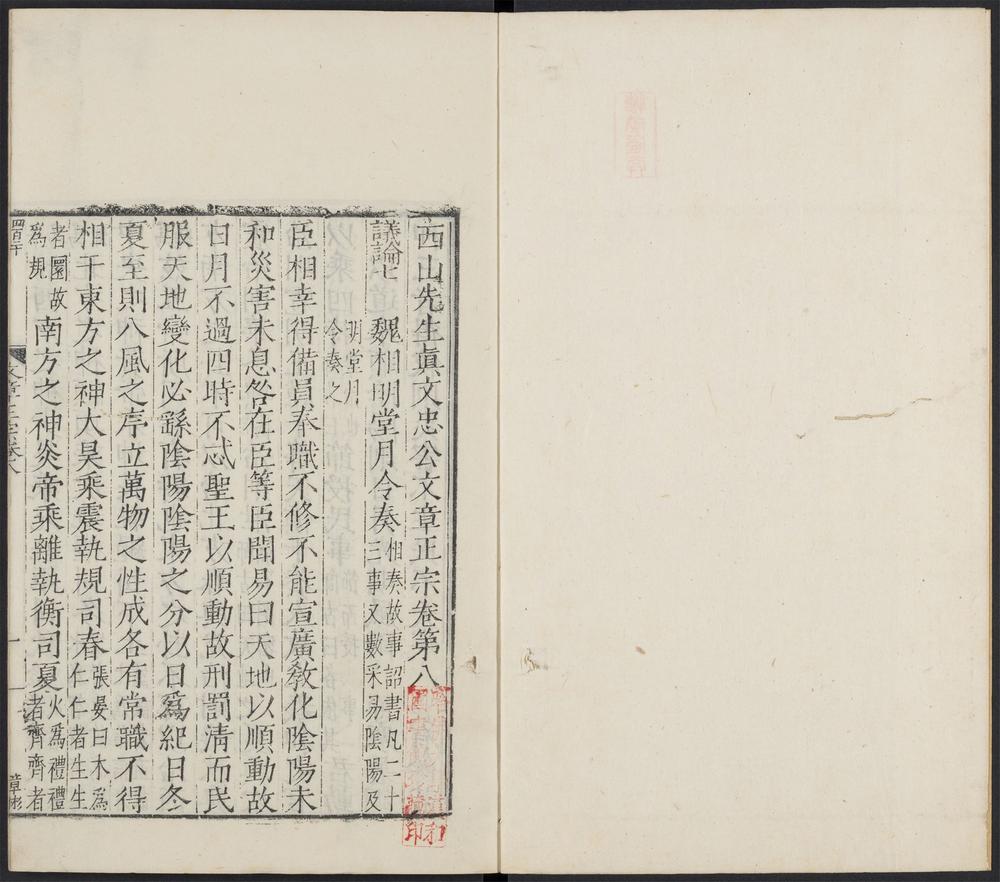 西山先生眞文忠公文章正宗卷第八
議論七
魏相明堂月令奏
相奏故事詔書凡二十
三事又數采易陰陽及
明堂月
令奏之
臣相幸得備員奉職不修不能宣廣敎化陰陽未
和災害未息咎在臣等臣聞易曰天地以順動故
日月不過四時不忒聖王以順動故刑罰清而民
服天地變化必繇陰陽陰陽之分以日爲紀日冬
夏至則八風之序立萬物之性成各有常職不得
相干東方之神大昊乘震執規司春
張晏曰木爲
仁仁者生生
者圜故
爲規
南方之神炎帝乘離執衡司夏
火爲禮禮
者齊齊者
文章正宗卷八
一
章彬